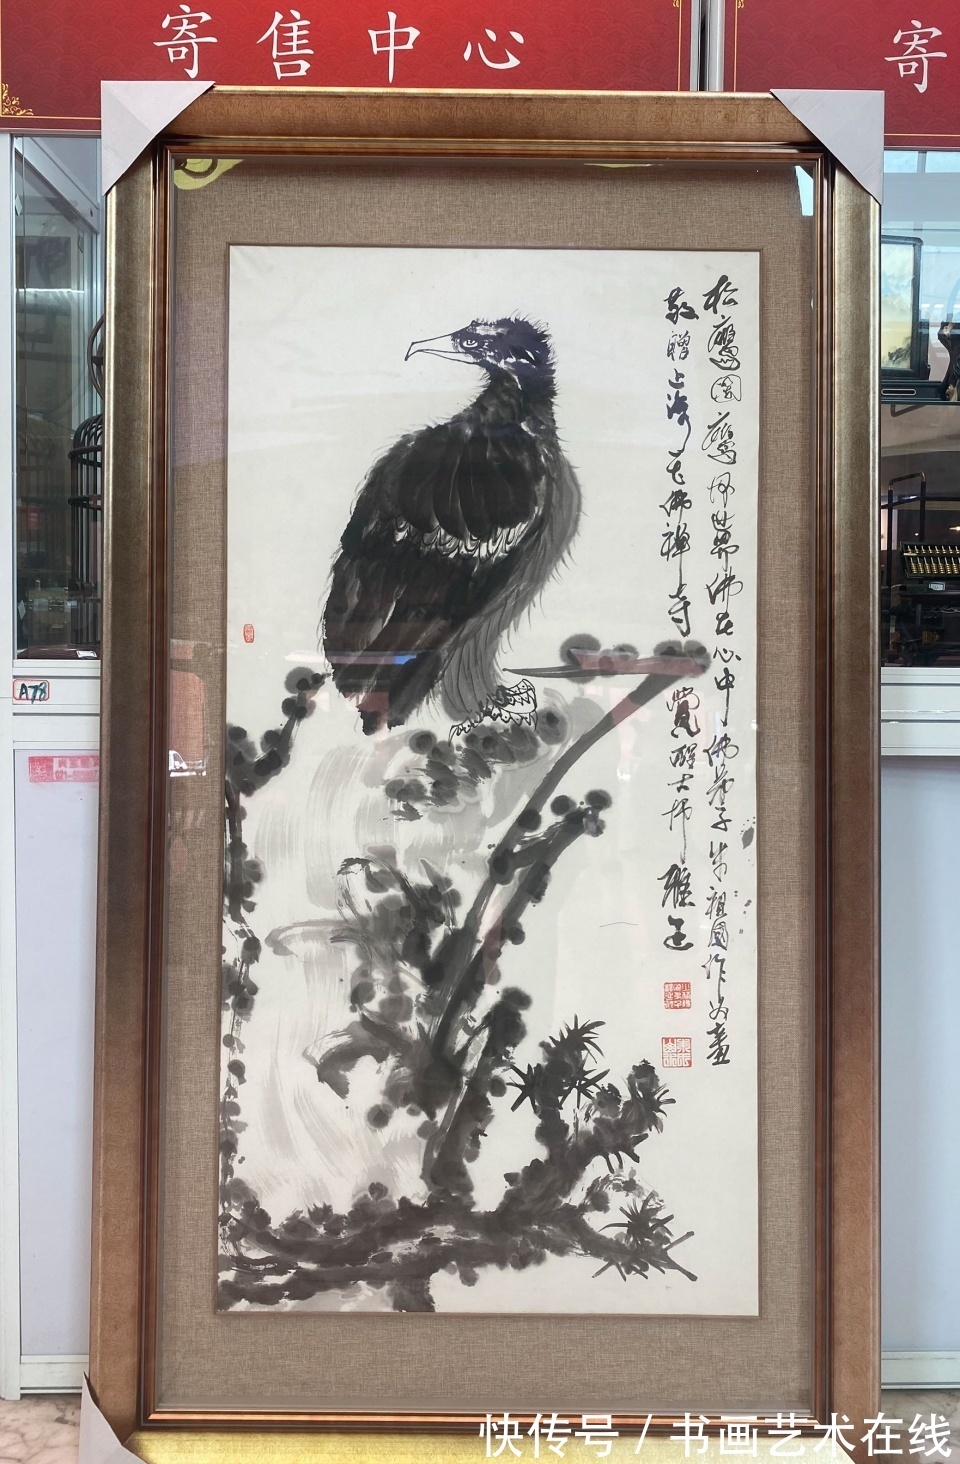 寄售中心
寄
松鹰图 鹰 世界佛在心中 佛弟子朱祖国作为画
敬赠上海 佛禅寺 觉醒大师 雅正
A78
快传号 / 书画艺术在线